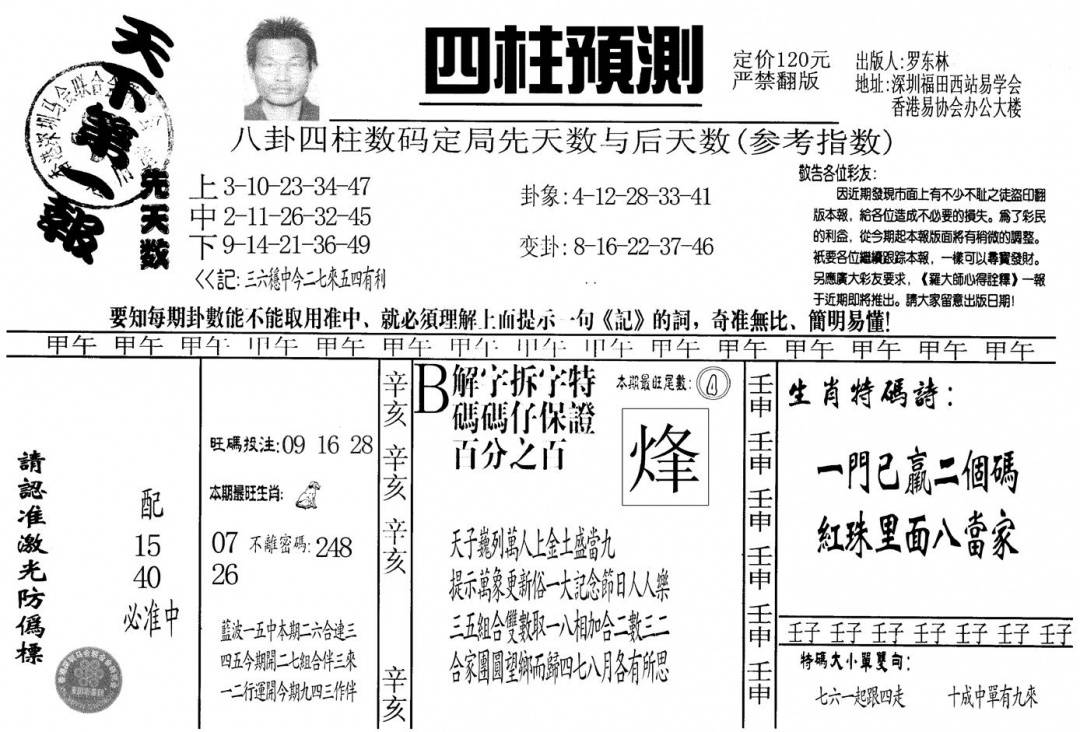 天下第一報
四柱預測
定价120元
严禁翻版
出版人:罗东林
地址:深圳福田西站易学会
香港易协会办公大楼
八卦四柱数码定局先天数与后天数(参考指数)
先天数
上 3-10-23-34-47
中 2-11-26-32-45
下 9-14-21-36-49
<<記:三六穩中今二七來五四有利
卦象:4-12-28-33-41
变卦:8-16-22-37-46
敬告各位彩友:
因近期發現市面上有不少不耻之徒盜印翻
版本報,給各位造成不必要的損失。爲了彩民
的利益,從今期起本報版面將有稍微的調整。
衹要各位繼續跟踪本報,一樣可以尋寶發財。
另應廣大彩友要求,《羅大師心得詮釋》一報
于近期即將推出。請大家留意出版日期!
要知每期卦數能不能取用准中、就必須理解上面提示一句《記》的詞,奇准無比、簡明易懂!
甲午 甲午 甲午 甲午 甲午 甲午 甲午 甲午 甲午 甲午 甲午 甲午 甲午 甲午 甲午
請認准激光防僞標
配
15
40
必准中
旺碼投注:09 16 28
本期最旺生肖:
07 不離密碼:248
26
藍波一五中本期二六合連三
四五今期開二七組合伴三來
一二行運開今期九四三作伴
辛亥 辛亥 辛亥 辛亥
B解字拆字特
碼碼仔保證
百分之百
本期最旺尾數:
烽
天子巍列萬人上金土盛當九
提示萬象更新俗一大記念節日人人樂
三五組合雙數取一八相加合二數三二
合家團圓望鄉而歸四七八月各有所思
壬申 壬申 壬申 壬申 壬申 壬申
生肖特碼詩:
一門已贏二個碼
紅珠里面八當家
壬子 壬子 壬子 壬子 壬子 壬子 壬子
特碼大小單雙句:
七六一起跟四走 十成中單有九來